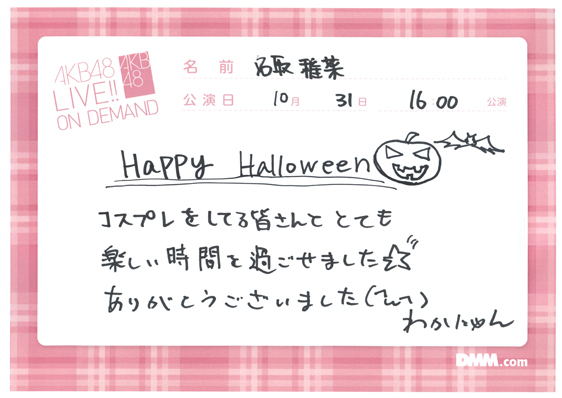 AKB48
LIVE!!
ON DEMAND
AKB
48
名 前 名取 稚菜
公演日 10月 31日 16 00 公演
Happy Halloween
コスプレをしてる皆さんと とても
楽しい時間を過ごせました☆
ありがとうございました
わかにゃん
DMM.com